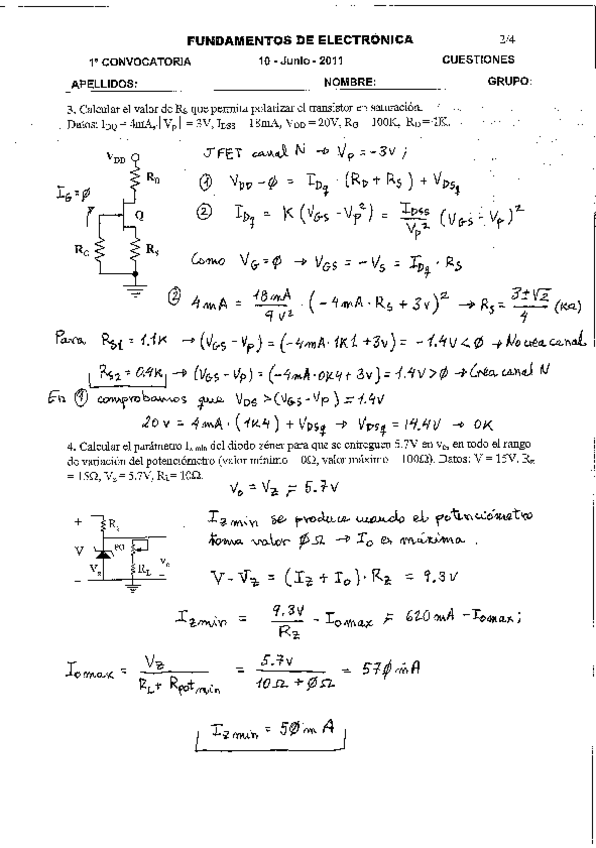 FUNDAMENTOS DE ELECTRÓNICA 2/4
1ª CONVOCATORIA 10 - Junio - 2011 CUESTIONES
APELLIDOS: NOMBRE: GRUPO:
3. Calcular el valor de RS que permita polarizar el transistor en saturación.
Datos: IDQ = 4mA, |VP| = 3V, IDSS = 18mA, VDD = 20V, RG = 100K, RD = 1K.
JFET canal N → VP = -3V ;
VDD
RD
IG = ∅
Q
RG
RS
① VDD - ∅ = IDq · (RD + RS) + VDSq
② IDq = K (VGS - VP²) = IDSS/VP² (VGS - VP)²
Como VG = ∅ → VGS = - VS = IDq · RS
② 4mA = 18mA/9V² · (-4mA · RS + 3V)² → RS = 3±√2/4 (KΩ)
Para RS1 = 1.1K → (VGS - VP) = (-4mA·1K1 + 3V) = -1.4V < ∅ → No crea canal
RS2 = 0.4K → (VGS - VP) = (-4mA·0K4 + 3V) = 1.4V > ∅ → Crea canal N
En ① comprobamos que VDS > (VGS - VP) = 1.4V
20V = 4mA · (1K4) + VDSq → VDSq = 14.4V → OK
4. Calcular el parámetro Iz min del diodo zéner para que se entreguen 5.7V en vo, en todo el rango
de variación del potenciómetro (valor mínimo = 0Ω, valor máximo = 100Ω). Datos: V = 15V, Rz
= 15Ω, Vz = 5.7V, RL = 10Ω.
Vo = VZ = 5.7V
+
V
−
Vz
RL
vo
IZmin se produce cuando el potenciómetro
toma valor ∅Ω → Io es máxima.
V - VZ = (IZ + Io) · RZ = 9.3V
IZmin = 9.3V/RZ - Iomax = 620mA - Iomax ;
Iomax = VZ/RL + Rpotmin = 5.7V/10Ω + ∅Ω = 57∅mA
IZmin = 5∅mA